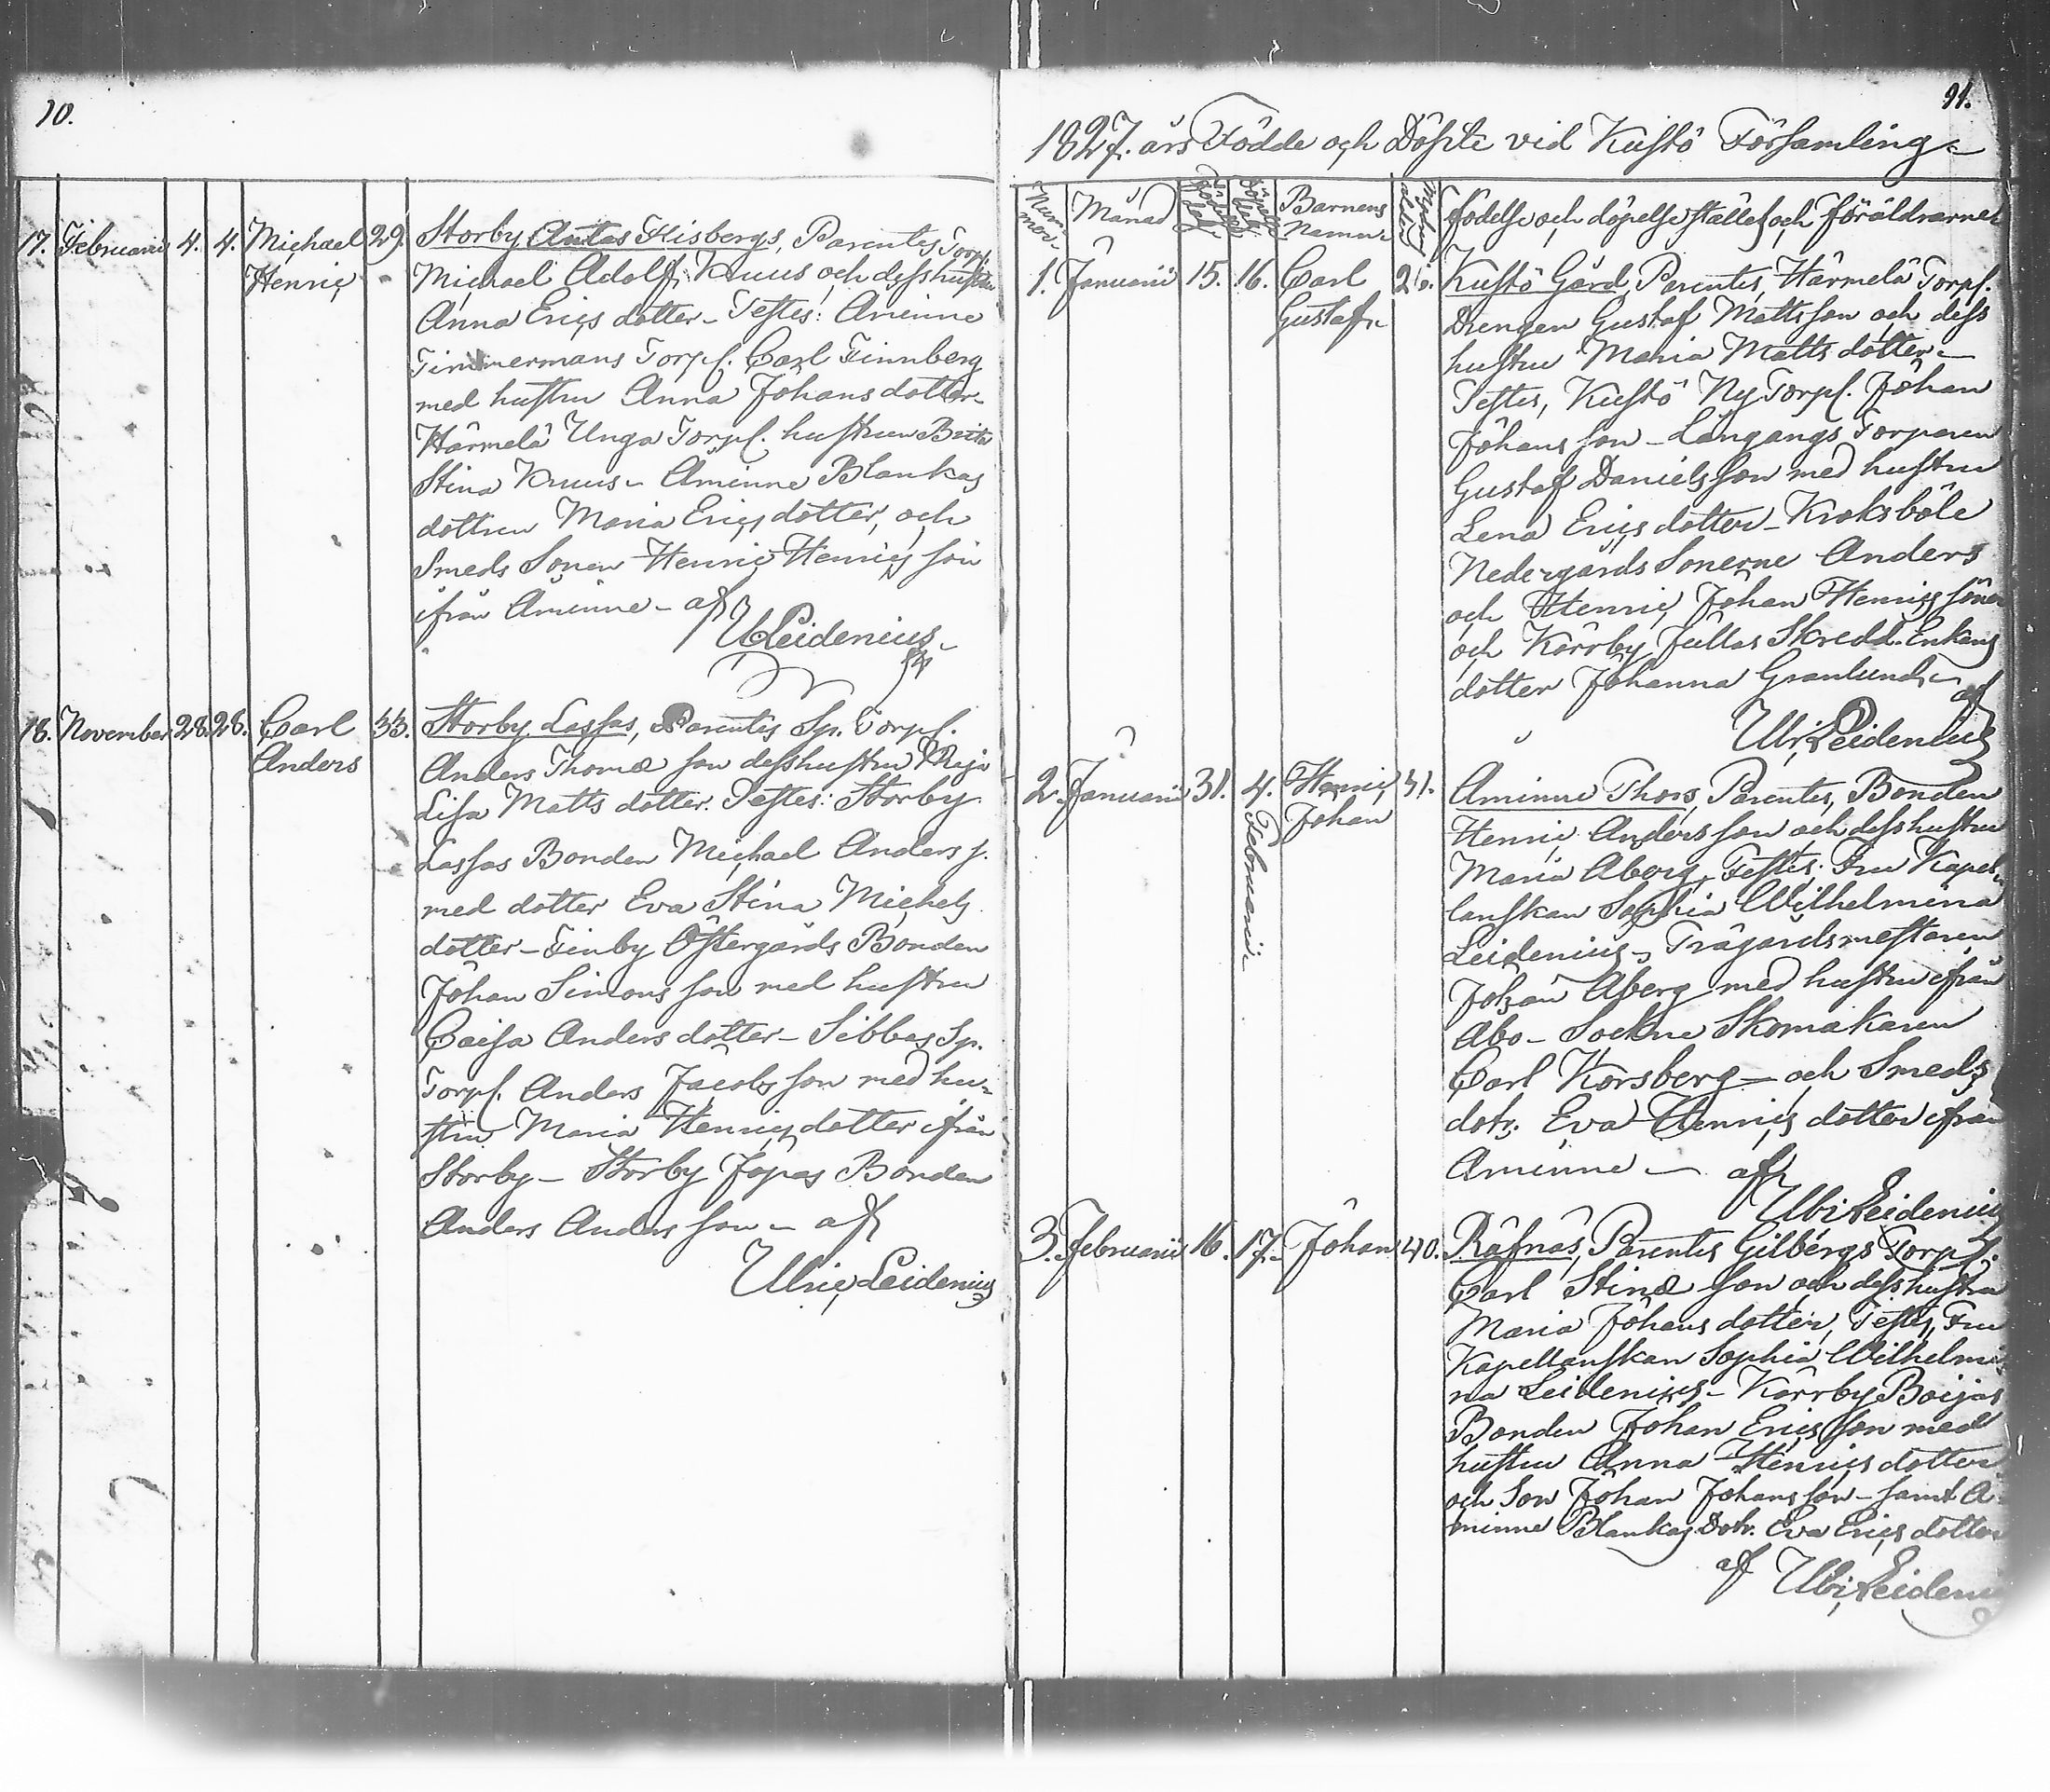 10.
17. Februarii 4. 4. Michael Henric 29. Storby Antas Kisbergs, Parentes Torp.
Michael Adolf Kruus och dess hustru
Anna Erics dotter – Testes: Åminne
Timmermans Torp. Carl Finnberg
med hustru Anna Johans dotter –
Härmelä Unga Torp. hustrun Brita
Stina Kruus – Åminne Blankas
dottren Maria Erics dotter, och
Smeds Sonen Henric Henrics son
ifrån Åminne – af
U Leidenius
18. November 28. 28. Carl Anders 33. Storby Lassas, Parentes Sp. Torp.
Anders Thomæ son dess hustru Maja
Lisa Matts dotter. Testes: Storby
Lassas Bonden Michael Anders s.
med dotter Eva Stina Michels
dotter – Finby Östergårds Bonden
Johan Simons son med hustru
Caisa Anders dotter – Sibbas Sp.
Torp. Anders Jacobs son med hu-
stru Maria Henrics dotter ifrån
Storby – Storby Jopas Bonden
Anders Anders son – af
Ulric Leidenius
91.
1827. års Födde och Döpte vid Kustö Församling
Num mer Månad Födelse dag Döpelse dag Barnens Namn Modrens ålder Födelse och döpelse stället och föräldrarne
1. Januarii 15. 16. Carl Gustaf 26. Kustö Gård, Parentes, Härmelä Torp.
Drengen Gustaf Matts son och dess
hustru Maria Matts dotter –
Testes, Kustö Ny Torp. Johan
Johans son – Långangs Torparen
Gustaf Daniels son med hustru
Lena Erics dotter – Kroksböle
Nedergårds Sonerne Anders
och Henric Johan Henrics söner
och Kärrby Jullas Skredd. Enkans
dotter Johanna Granlund –
af
Ulr. Leidenius
2. Januarii 31. 4. Februarii Henric Johan 31. Åminne Thors, Parentes, Bonden
Henric Anders son och dess hustru
Maria Åberg, Testes: Fru Kapel-
lanskan Sophia Wilhelmina
Leidenius – Trägårdsmestaren
Johan Åberg med hustru ifrån
Åbo – Sockne Skomakaren
Carl Korsberg – och Smeds
dotr. Eva Henrics dotter ifrån
Åminne – af
Ulr. Leidenius
3. Februarii 16. 17. Johan 40. Räfnäs, Parentes Gilbergs Torp.
Carl Stinæ son och dess hustru
Maria Johans dotter, Testes, Fru
Kapellanskan Sophia Wilhelmi-
na Leidenius – Kärrby Böijas
Bonden Johan Erics son med
hustru Anna Henrics dotter
och Son Johan Johans son – samt Å-
minne Blankas Dotr. Eva Erics dotter
af Ulr. Leidenius